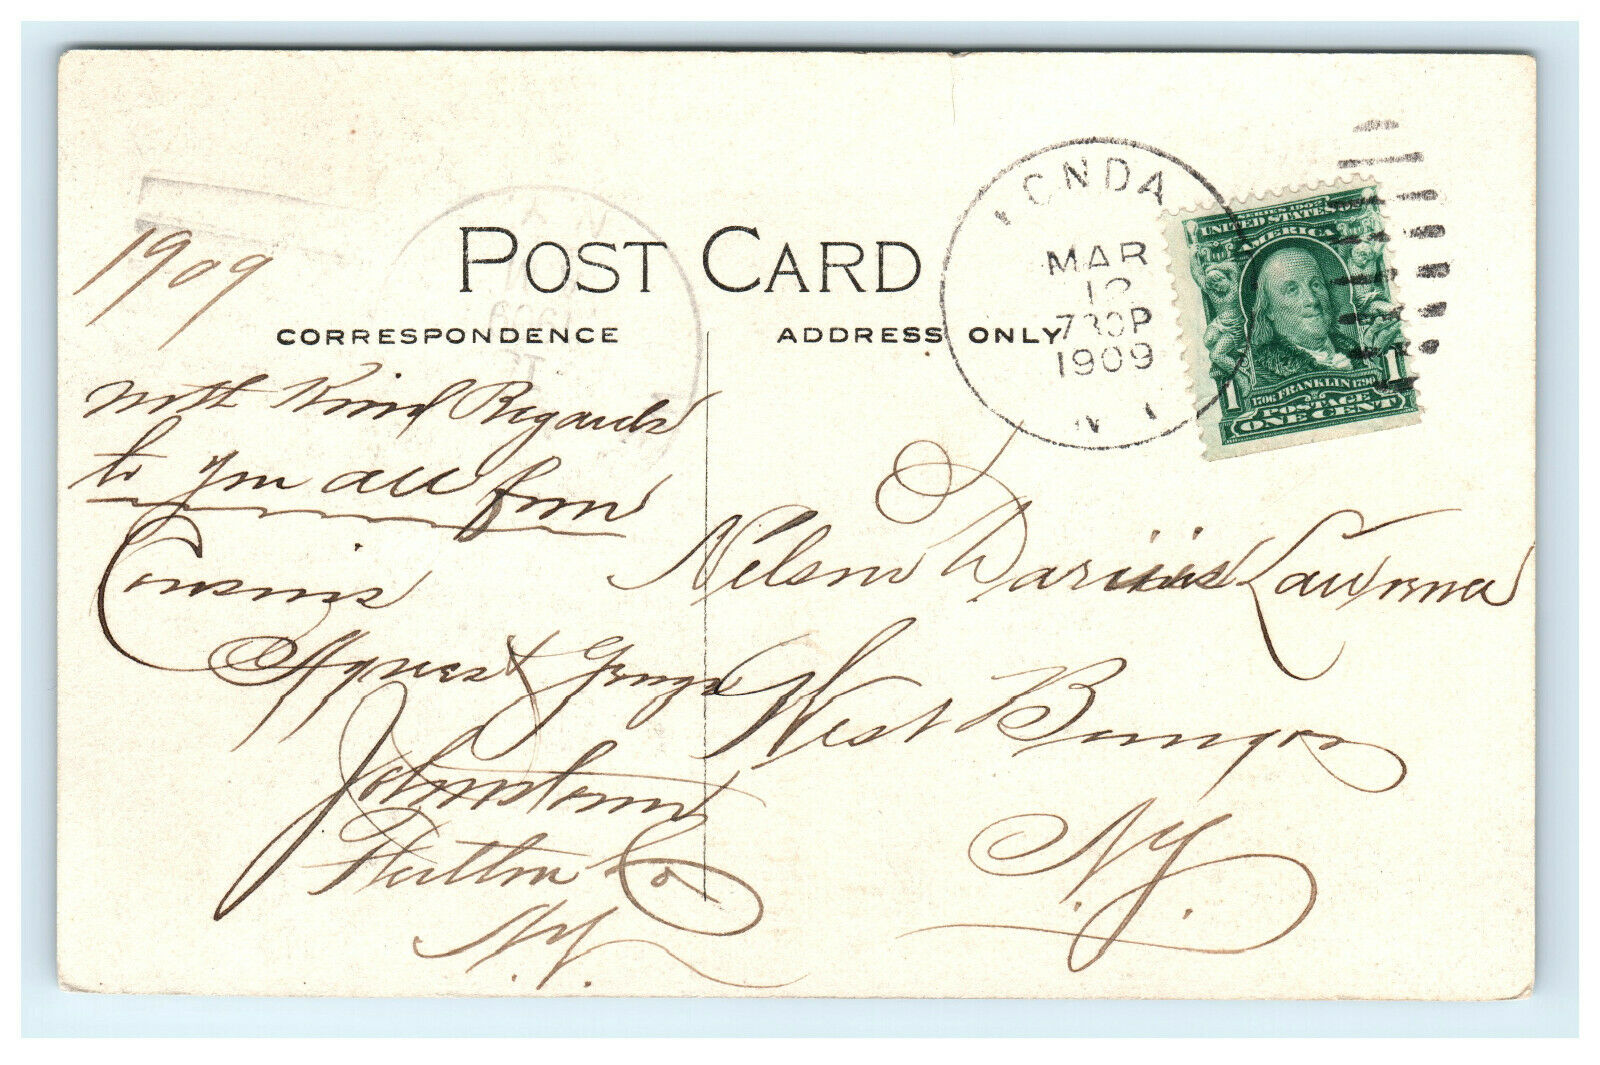 1909
POST CARD
CORRESPONDENCE
ADDRESS ONLY
With Kind Regards
to you all from
Cousins
Agnes & George
Johnstown
Fulton Co
N.Y.
FONDA
MAR
12
730P
1909
N Y
SERIES 1902
UNITED STATES OF
AMERICA
1706 FRANKLIN 1790
1 1
POSTAGE
ONE CENT
Nelson Darius Lawrence
West Bangor
N.Y.
N.Y.
1909